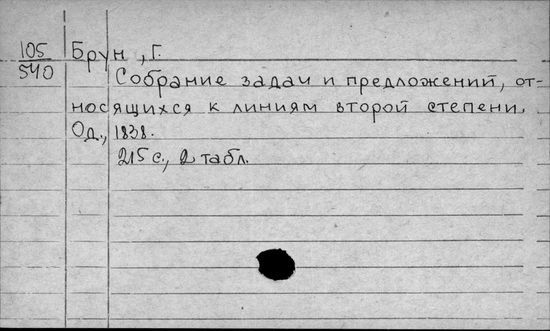 105
540
Брун, Г.
Собрание задач и предложений, от-
носящихся к линиям второй степени.
Од., 1838.
215 с., 2 табл.